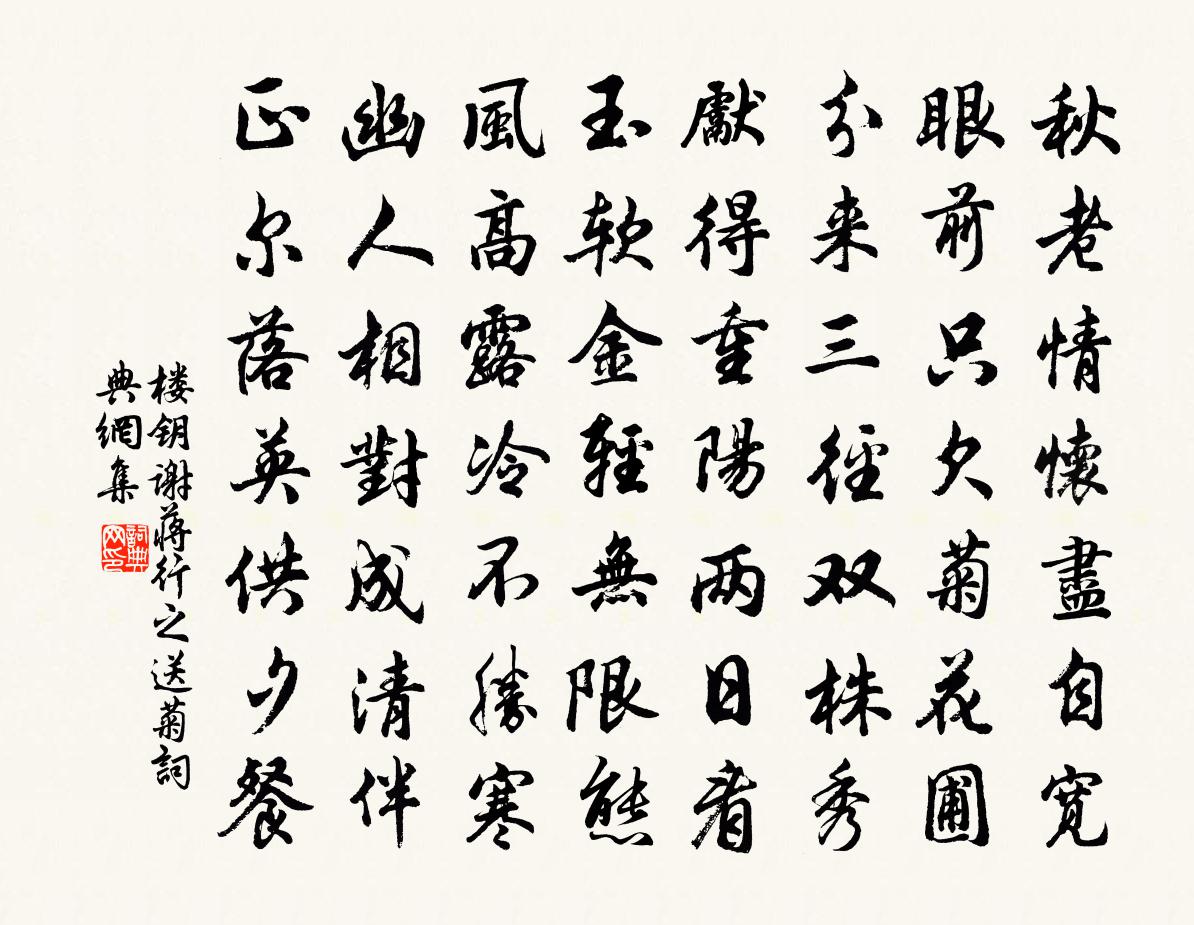 秋老情懷盡自寬
眼前只欠菊花圃
分来三徑双株秀
獻得重陽两日看
玉軟金輕無限態
風高露冷不勝寒
幽人相對成清伴
正尔落英供夕餐
楼钥谢蒋行之送菊詞
典網集
詞典网印